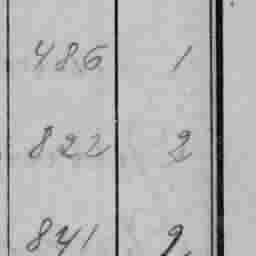 486 1
822 2
841 2